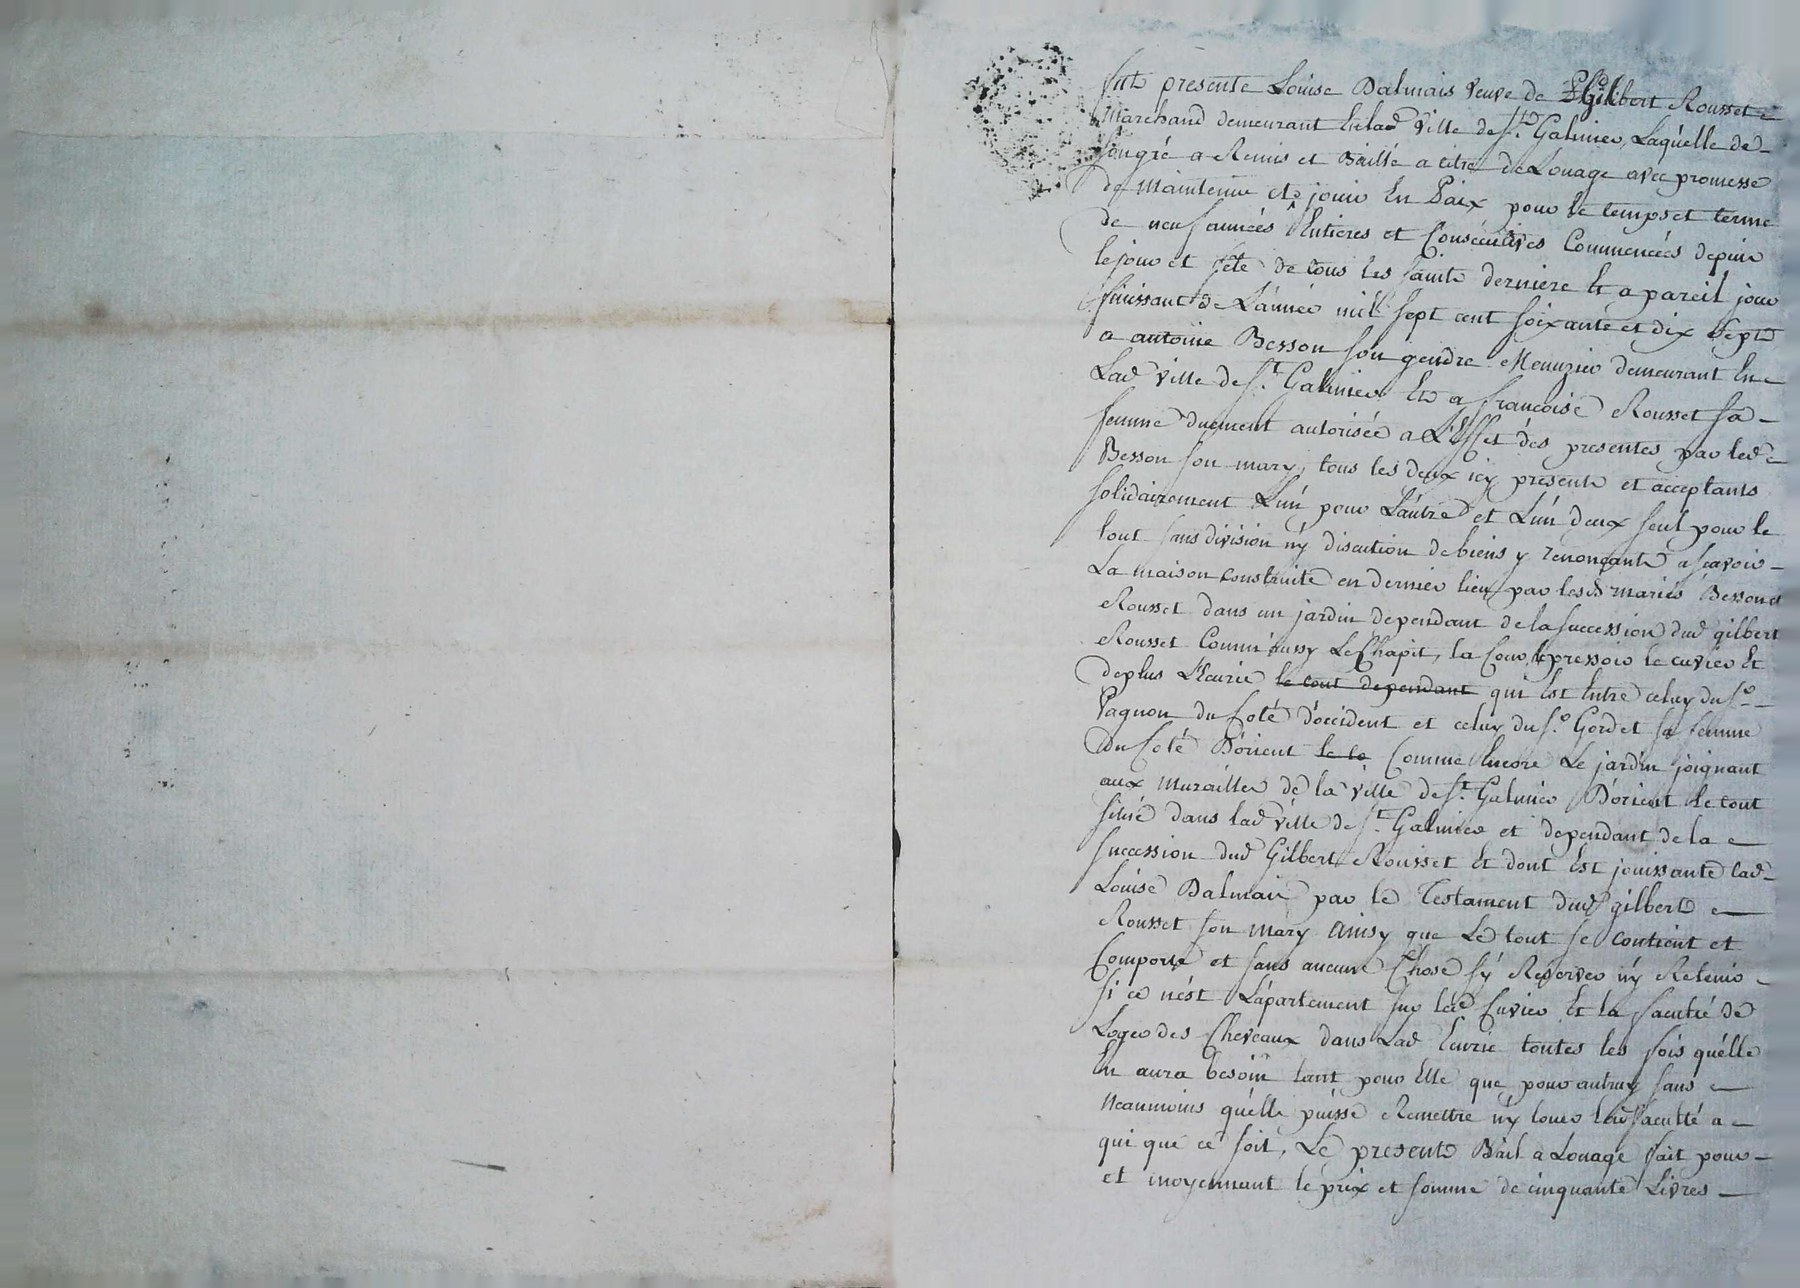 fut presente Louise Dalmais veuve de Gilibert Rousset
Marchand demeurant En lad ville de St. Galmier, Laquélle de
son gré a Remis et Baillé a titre de Louage avec promesse
de maintenue et jouir En Paix pour le temps et terme
de neuf années Entieres et Consécutives Commencées depuis
le jour et fête de tous les saints derniere Et a pareil jour
finissant de L'année mil sept cent soixante et dix sept
a antoine Besson son gendre Menuzier demeurant En
Lad ville de St. Galmier Et a francoise Rousset sa
femme duement autorisée a L'Effet des presentes par led
Besson son mary, tous les deux icy presents et acceptants
solidairement L'un pour L'autre et L'un deux seul pour le
tout sans division ny discution de biens y renonçants a scavoir
La maison construite en dernier lieu par lesd mariés Besson et
Rousset dans un jardin dependant de la succession dud gilbert
Rousset Comm'aussy Le Chapit, la Cour, le pressoir le cuvier Et
de plus L'Ecurie le tout dependant qui Est Entre celuy du Sr.
Pagnon du Coté d'occident et celuy du Sr. Gord et sa femme
du Coté D'orient le to Comme Encore Le jardin joignant
aux murailles de la ville de St. Galmier D'orient le tout
situé dans lad ville de St. Galmier et dependant de la
succession dud Gilbert Rousset Et dont Est jouissante lad
Louise Dalmais par le Testament dud gilbert
Rousset son mary Ainsy que Le tout se contient et
Comporte et sans aucune Chose s'y Reserver n'y Retenir
si ce n'est L'apartement sur led Cuvier Et la faculté de
Loger des Chevaux dans Lad Ecurie toutes les fois qu'élle
En aura besoin tant pour Elle que pour autruy sans
neanmoins qu'elle puisse Remettre n'y louer lad faculté a
qui que ce soit, Le present Bail a Louage fait pour
et moyennant le prix et somme de cinquante Livres